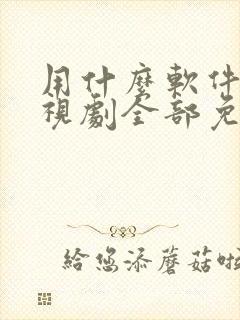 用什麼軟件
視劇全部免
給您添蘑菇啦